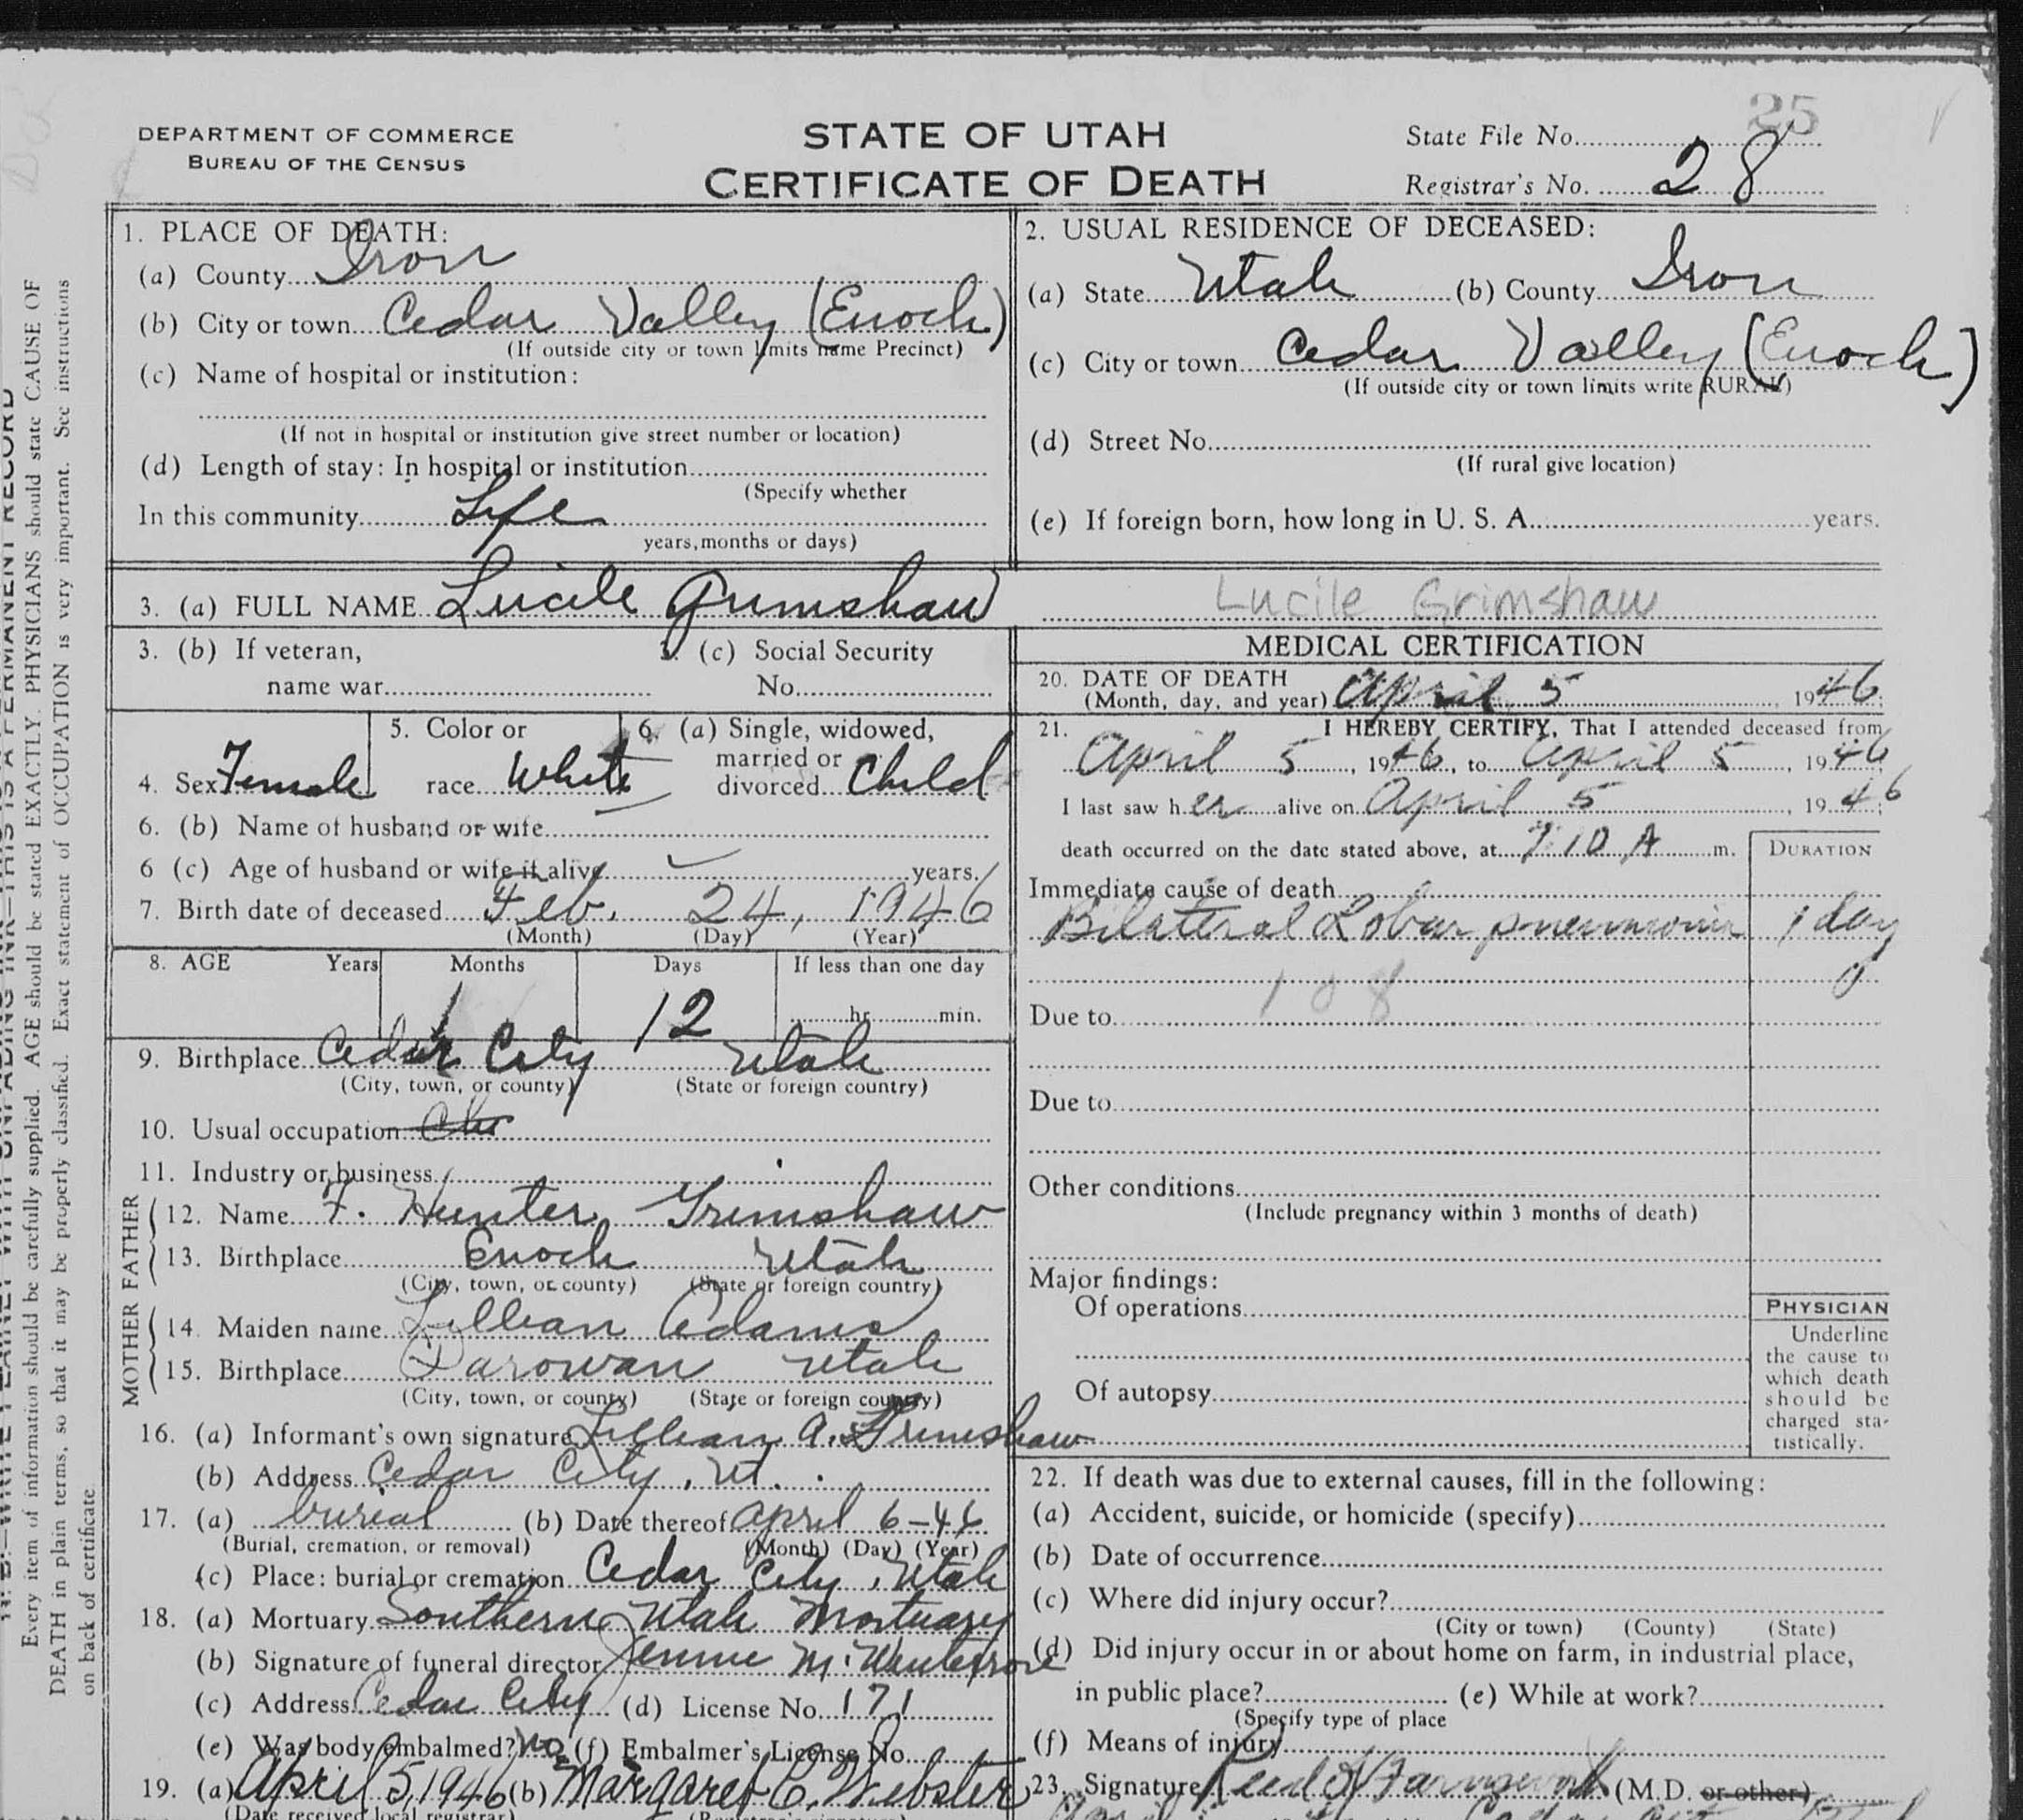 DEPARTMENT OF COMMERCE
BUREAU OF THE CENSUS
STATE OF UTAH
CERTIFICATE OF DEATH
25
State File No.
Registrar's No. 28
Every item of information should be carefully supplied. AGE should be stated EXACTLY. PHYSICIANS should state CAUSE OF
DEATH in plain terms, so that it may be properly classified. Exact statement of OCCUPATION is very important. See instructions
on back of certificate.
1. PLACE OF DEATH:
(a) County Iron
(b) City or town Cedar Valley (Enoch)
(If outside city or town limits name Precinct)
(c) Name of hospital or institution:
(If not in hospital or institution give street number or location)
(d) Length of stay: In hospital or institution
(Specify whether
In this community Life
years, months or days)
2. USUAL RESIDENCE OF DECEASED:
(a) State Utah (b) County Iron
(c) City or town Cedar Valley (Enoch)
(If outside city or town limits write RURAL)
(d) Street No.
(If rural give location)
(e) If foreign born, how long in U. S. A. years.
3. (a) FULL NAME Lucile Grimshaw Lucile Grimshaw
3. (b) If veteran,
name war
3. (c) Social Security
No.
4. Sex Female
5. Color or
race White
6. (a) Single, widowed,
married or
divorced Child
6. (b) Name of husband or wife
6 (c) Age of husband or wife if alive years.
7. Birth date of deceased Feb. 24, 1946
(Month) (Day) (Year)
8. AGE Years Months Days If less than one day
1 12 hr. min.
9. Birthplace Cedar City Utah
(City, town, or county) (State or foreign country)
10. Usual occupation
11. Industry or business
FATHER
12. Name F. Hunter Grimshaw
13. Birthplace Enoch Utah
(City, town, or county) (State or foreign country)
MOTHER
14. Maiden name Lillian Adams
15. Birthplace Parowan Utah
(City, town, or county) (State or foreign country)
16. (a) Informant's own signature Lillian A. Grimshaw
(b) Address Cedar City, Ut.
17. (a) burial (b) Date thereof April 6-46
(Burial, cremation, or removal) (Month) (Day) (Year)
(c) Place: burial or cremation Cedar City, Utah
18. (a) Mortuary Southern Utah Mortuary
(b) Signature of funeral director Jennie M.
(c) Address Cedar City (d) License No. 171
(e) Was body embalmed? no (f) Embalmer's License No.
19. (a) April 5, 1946 (b) Margaret C. Webster
(Date received local registrar)
MEDICAL CERTIFICATION
20. DATE OF DEATH
(Month, day, and year) April 5 1946
21. I HEREBY CERTIFY, That I attended deceased from
April 5, 1946, to April 5, 1946
I last saw her alive on April 5 1946;
death occurred on the date stated above, at 7:10 A m.
DURATION
Immediate cause of death
Bilateral Lobar pneumonia 1 day
108
Due to
Due to
Other conditions
(Include pregnancy within 3 months of death)
Major findings:
Of operations
Of autopsy
PHYSICIAN
Underline
the cause to
which death
should be
charged sta-
tistically.
22. If death was due to external causes, fill in the following:
(a) Accident, suicide, or homicide (specify)
(b) Date of occurrence
(c) Where did injury occur?
(City or town) (County) (State)
(d) Did injury occur in or about home on farm, in industrial place,
in public place? (e) While at work?
(Specify type of place
(f) Means of injury
23. Signature Reed Farnsworth (M.D. or other)